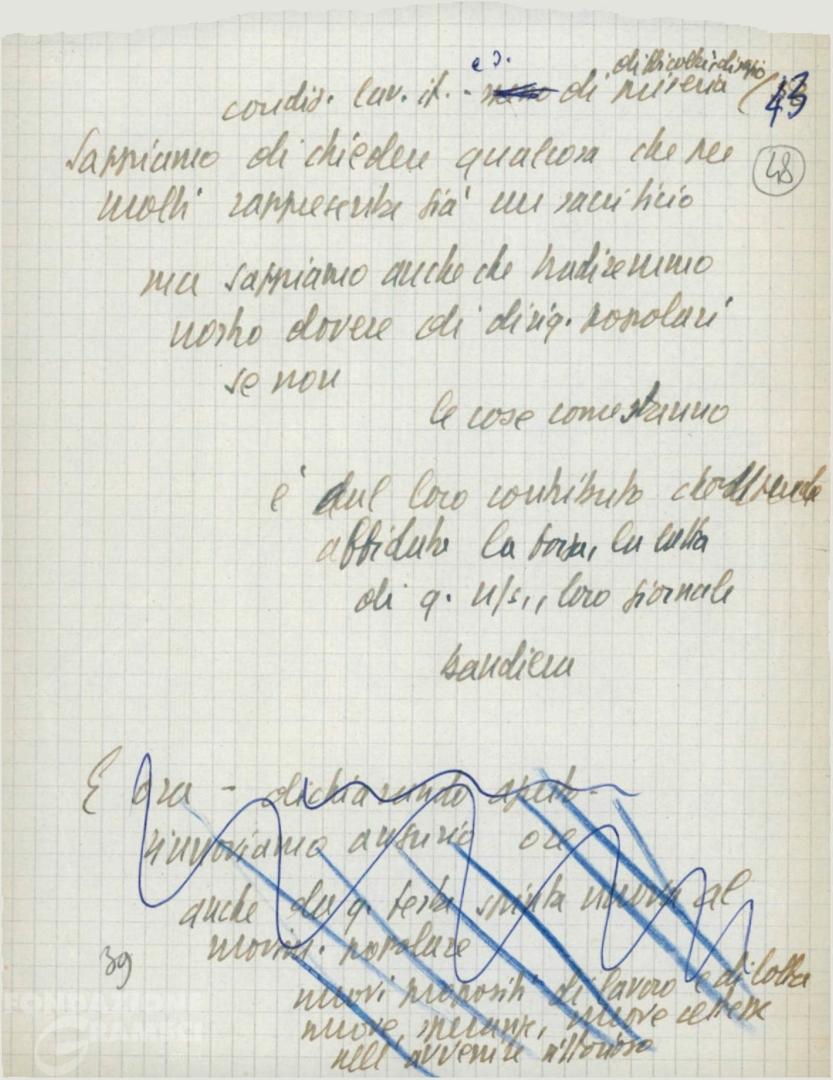 condiz. lav. it. - di miseria (43
difficoltà disagio
Sappiamo di chiedere qualcosa che per
48
molti rappresenta già un sacrificio
ma sappiamo anche che tradiremmo
nostro dovere di dirig. popolari
se non
le cose come stanno
è dal loro contributo che dipende
affidata la forza, la lotta
di q. loro giornale
bandiera
E ora - dichiarando aperta -
rinnoviamo augurio
anche da q. festa spinta nuova al
movim. popolare
39
nuovi propositi di lavoro e di lotta
nuove speranze, nuove certezze
nell'avvenire vittorioso
FONDAZIONE
GRAMSCI